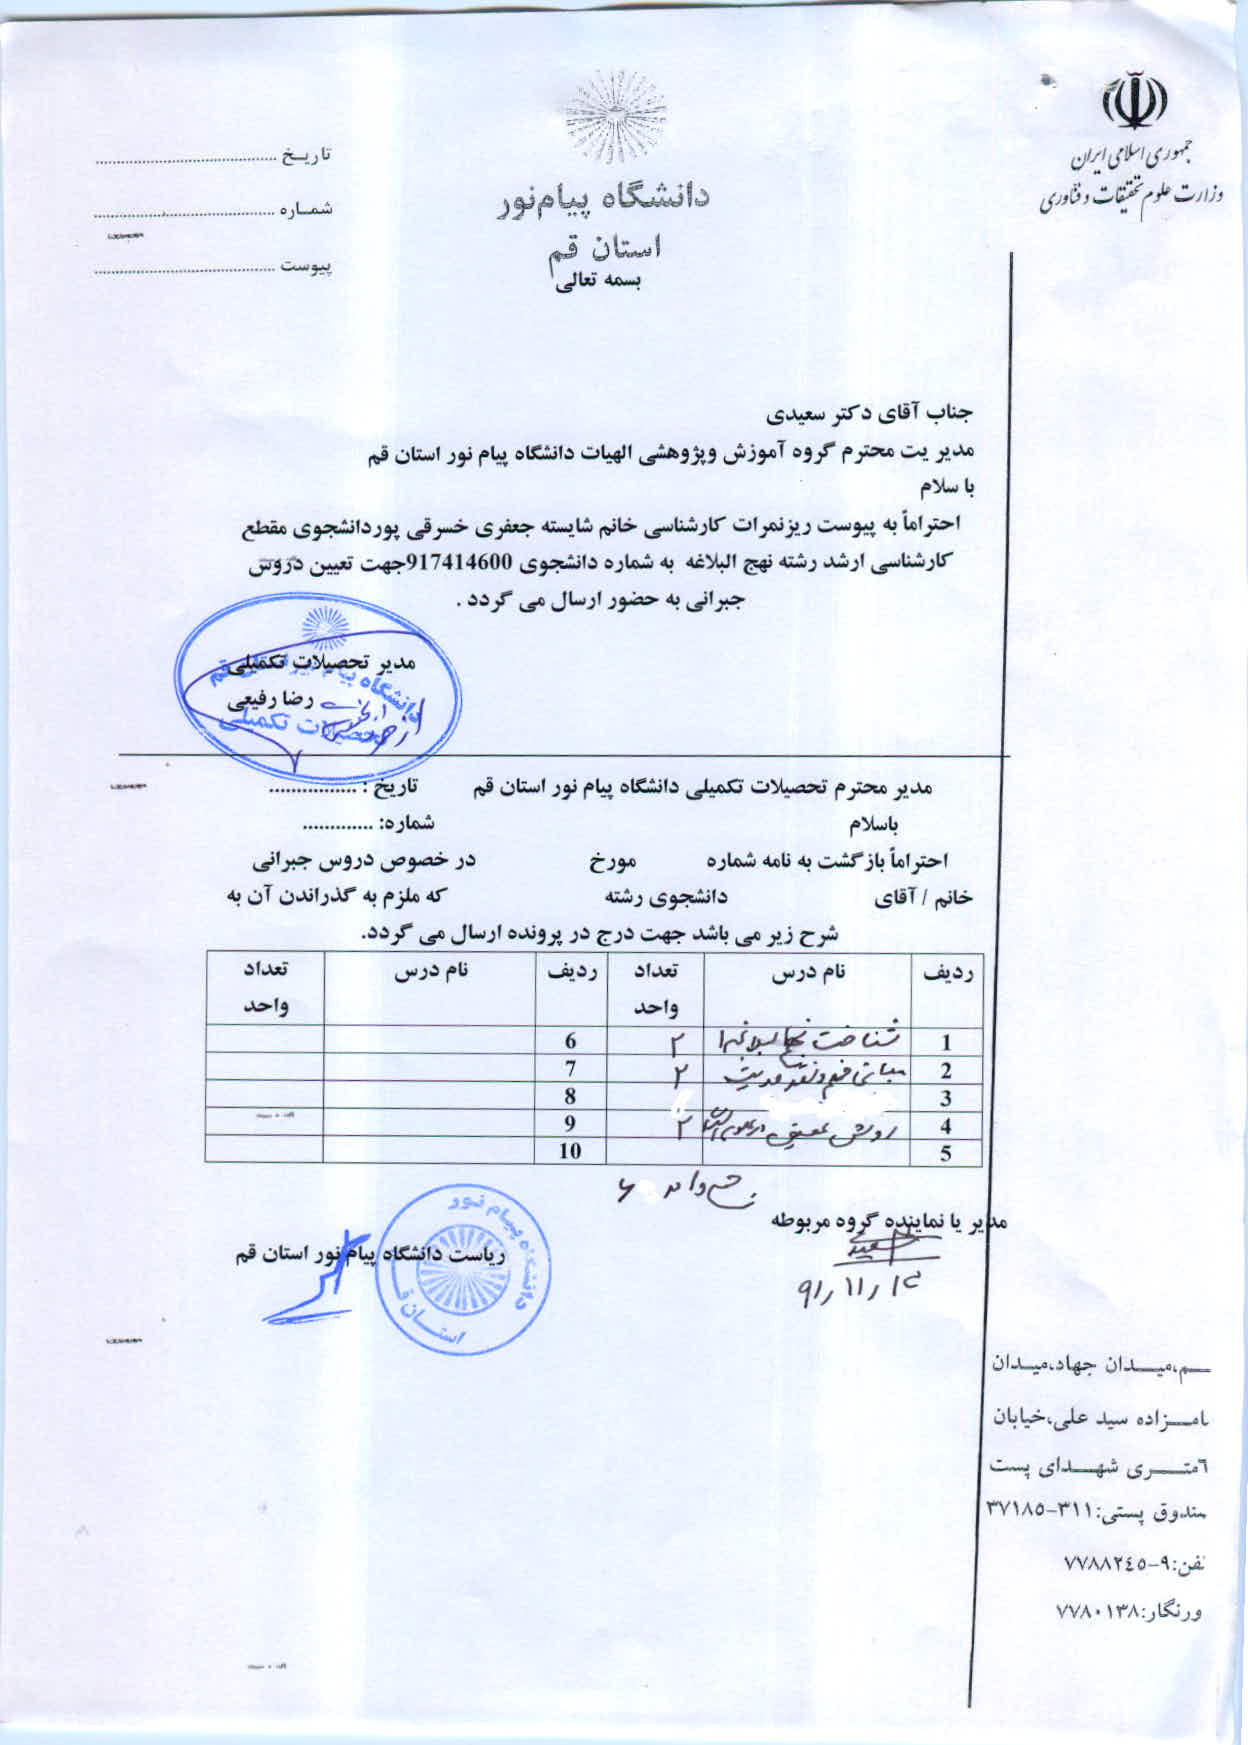 جمهوری اسلامی ایران
وزارت علوم تحقیقات و فناوری
دانشگاه پیام‌نور
استان قم
بسمه تعالی
تاریخ ........................................
شماره ........................................
پیوست ........................................
جناب آقای دکتر سعیدی
مدیر یت محترم گروه آموزش وپژوهشی الهیات دانشگاه پیام نور استان قم
با سلام
احتراماً به پیوست ریزنمرات کارشناسی خانم شایسته جعفری خسرقی پوردانشجوی مقطع
کارشناسی ارشد رشته نهج البلاغه به شماره دانشجوی 917414600جهت تعیین دروس
جبرانی به حضور ارسال می گردد .
مدیر تحصیلات تکمیلی
رضا رفیعی
دانشگاه پیام نور استان قم
تحصیلات تکمیلی
مدیر محترم تحصیلات تکمیلی دانشگاه پیام نور استان قم تاریخ : ................
باسلام شماره: .............
احتراماً بازگشت به نامه شماره مورخ در خصوص دروس جبرانی
خانم / آقای دانشجوی رشته که ملزم به گذراندن آن به
شرح زیر می باشد جهت درج در پرونده ارسال می گردد.
ردیف نام درس تعداد واحد ردیف نام درس تعداد واحد
1 شناخت نهج البلاغه ۱ ۲ 6
2 مبانی فهم و نقد حدیث ۲ 7
3 8
4 روش تحقیق در علوم ۲ 9
5 10
۶
مدیر یا نماینده گروه مربوطه
سعیدی
۹۱٫۱۱٫۱۲
ریاست دانشگاه پیام نور استان قم
دانشگاه پیام نور
استان ق
ـم،میدان جهاد،میدان
امـزاده سید علی،خیابان
٦متـری شهـدای پست
ـندوق پستی:۳۱۱-۳۷۱۸۵
ـفن:۹-۷۷۸۸۲٤۵
ورنگار:۷۷۸۰۱۳۸